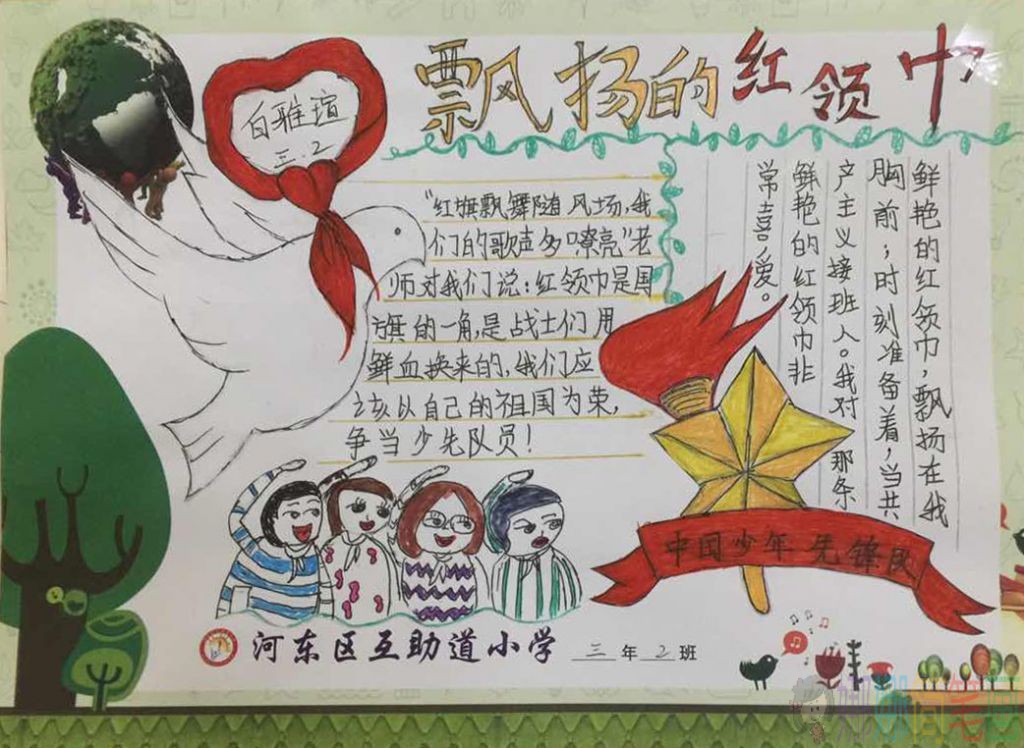 飘扬的红领巾
白雅瑄
三.2
“红旗飘舞随风场,我
们的歌声多嘹亮”老
师对我们说:红领巾是国
旗的一角,是战士们用
鲜血换来的,我们应
该以自己的祖国为荣,
争当少先队员!
鲜艳的红领巾,飘扬在我
胸前;时刻准备着,当共
产主义接班人。我对那条
鲜艳的红领巾非
常喜爱。
中国少年先锋队
河东区互助道小学 三年2班